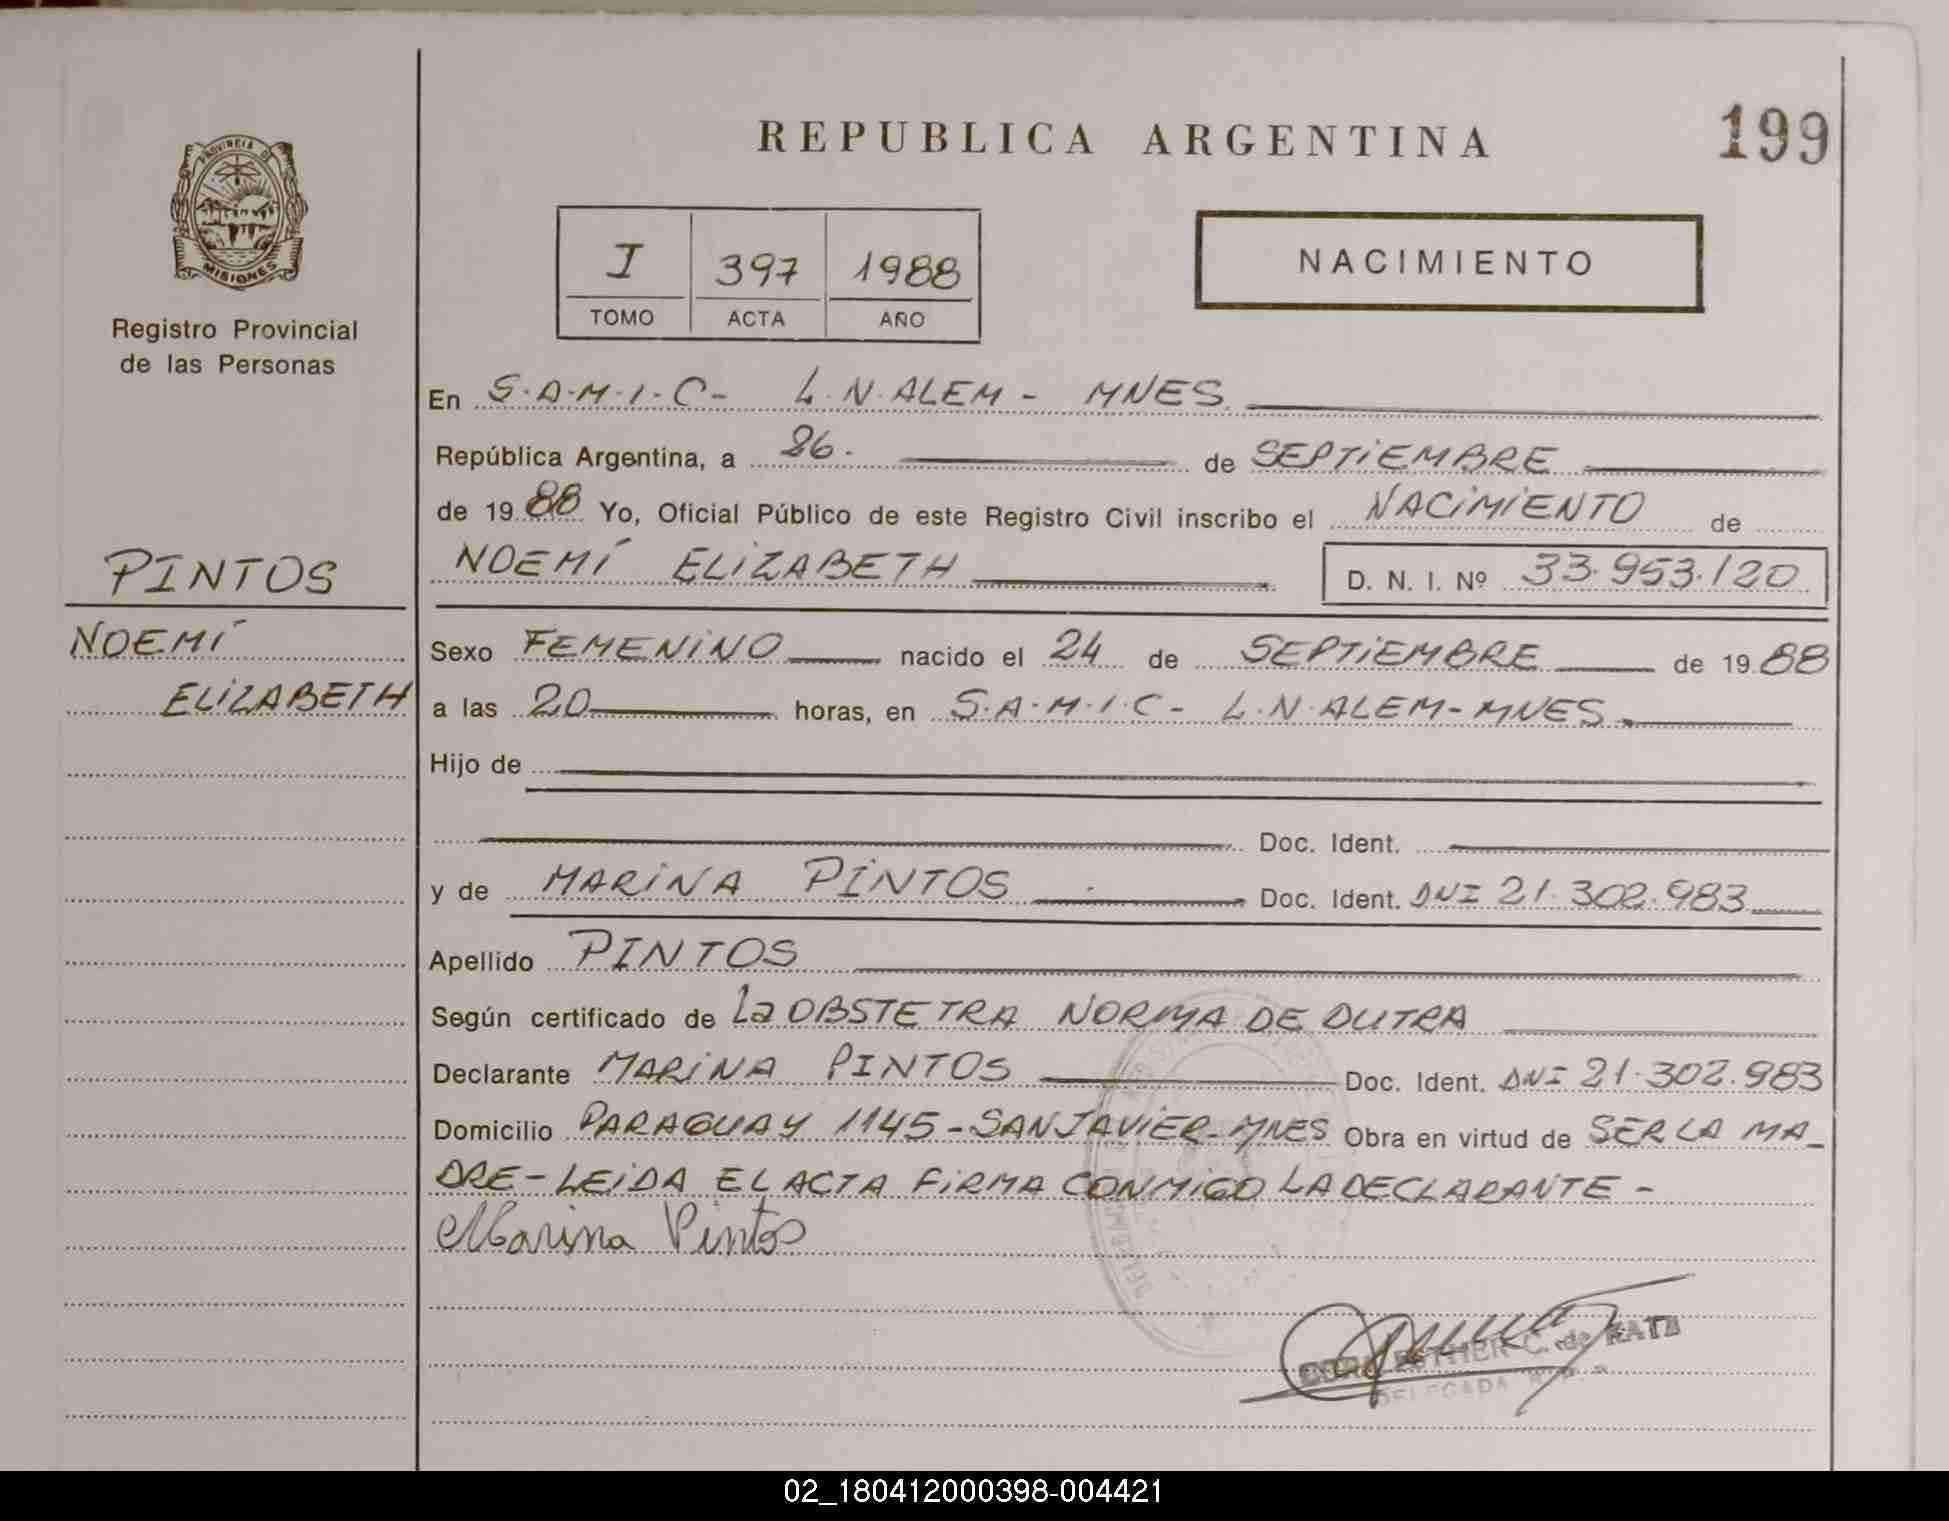 PROVINCIA DE
MISIONES
Registro Provincial
de las Personas
PINTOS
NOEMÍ
ELIZABETH
REPUBLICA ARGENTINA
199
I 397 1988
TOMO ACTA AÑO
NACIMIENTO
En S.A.M.I.C- L.N.ALEM - MNES
República Argentina, a 26. de SEPTIEMBRE
de 1988 Yo, Oficial Público de este Registro Civil inscribo el NACIMIENTO de
NOEMÍ ELIZABETH D. N. I. Nº 33.953.120
Sexo FEMENINO nacido el 24 de SEPTIEMBRE de 1988
a las 20 horas, en S.A.M.I.C- L.N.ALEM-MNES
Hijo de
Doc. Ident.
y de MARINA PINTOS Doc. Ident. DNI 21.302.983
Apellido PINTOS
Según certificado de La OBSTETRA NORMA DE DUTRA
Declarante MARINA PINTOS Doc. Ident. DNI 21.302.983
Domicilio PARAGUAY 1145-SAN JAVIER-MNES Obra en virtud de SER LA MA-
DRE-LEIDA EL ACTA FIRMA CONMIGO LA DECLARANTE -
Marina Pintos
ESTHER C. de KATZ
DELEGADA
02_180412000398-004421